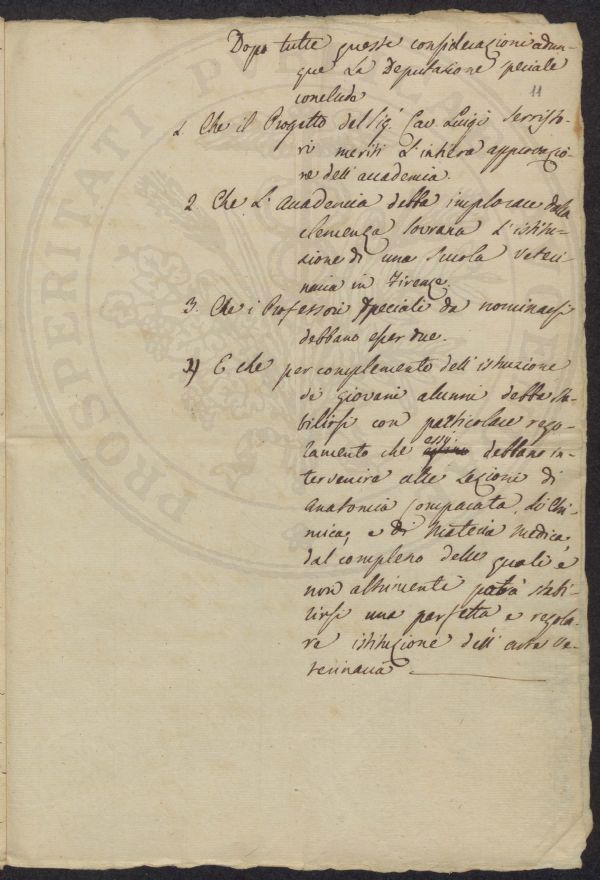 Dopo tutte queste considerazioni adun-
que La Deputazione speciale
conclude
11
1. Che il Progetto del Sig.r Cav Luigi Serristo-
ri meriti l'intiera approvazio-
ne dell'accademia.
2 Che L'Accademia debba implorare dalla
clemenza Sovrana L'istitu-
zione di una Scuola Veteri-
naria in Firenze.
3. Che i Professori Speciali da nominarsi
debbano esser due.
4) E che per complemento dell'istruzione
dei giovani alunni debba sta-
bilirsi con particolare rego-
lamento che essi debbano in-
tervenire alle Lezioni di
Anatomia Comparata, di Chi-
mica, e di Materia Medica,
dal complesso delle quali e
non altrimenti potrà stabi-
lirsi una perfetta e regola-
re istituzione dell'arte Ve-
terinaria.
PROSPERITATI PUBLICAE